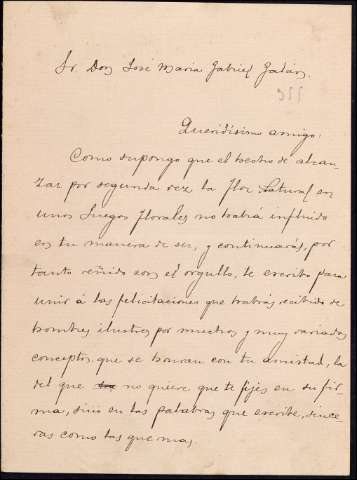 Sr. Don José Maria Gabriel Galán.
Queridísimo amigo:
Como supongo que el hecho de alcan-
zar por segunda vez la flor natural en
unos Juegos florales no habrá influido
en tu manera de ser, y continuarás, por
tanto reñido con el orgullo, te escribo para
unir á las felicitaciones que habrás recibido de
hombres ilustres por muchos y muy variados
conceptos, que se honran con tu amistad, la
del que no quiere que te fijes en su fir-
ma, sino en las palabras que escribe, since-
ras como las que mas.